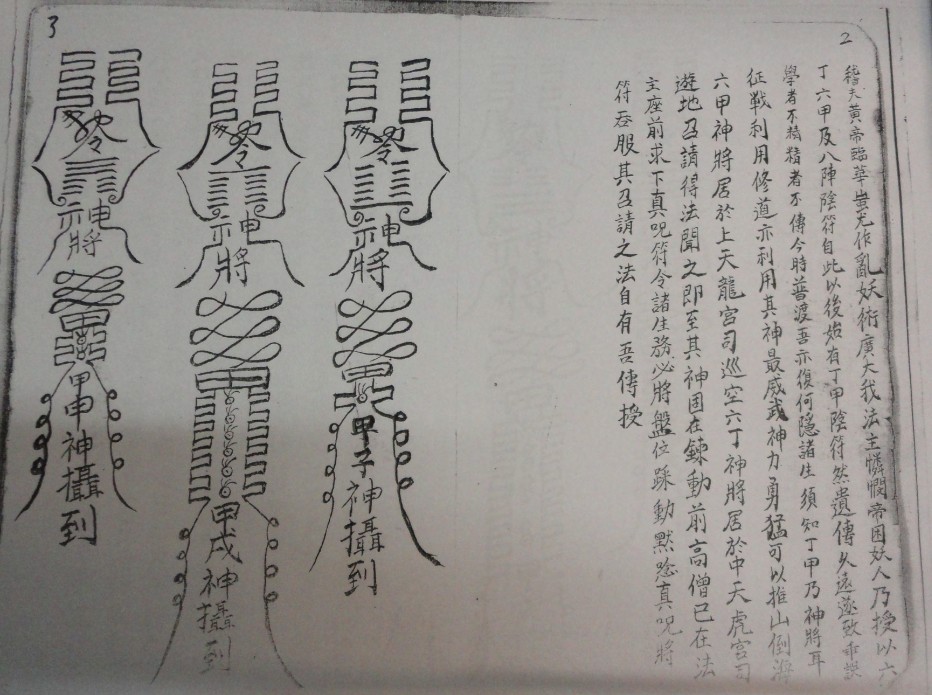 2
稽夫黃帝臨華蚩尤作亂妖術廣大我法主憐憫帝困妖人乃授以六
丁六甲及八陣陰符自此以後始有丁甲陰符然遺傳久遠遂致乖誤
學者不精精者不傳今時普渡吾亦復何隱諸生須知丁甲乃神將耳
征戰利用修道亦利用其神最威武神力勇猛可以推山倒海
六甲神將居於上天龍宮司巡空六丁神將居於中天虎宮司
遊地召請得法聞之即至其神固在鍊動前高僧已在法
主座前求下真咒符令諸生務必將盤位踩動默唸真咒將
符吞服其召請之法自有吾傳授
3
神將
甲子神攝到
神將
甲戌神攝到
神將
甲申神攝到